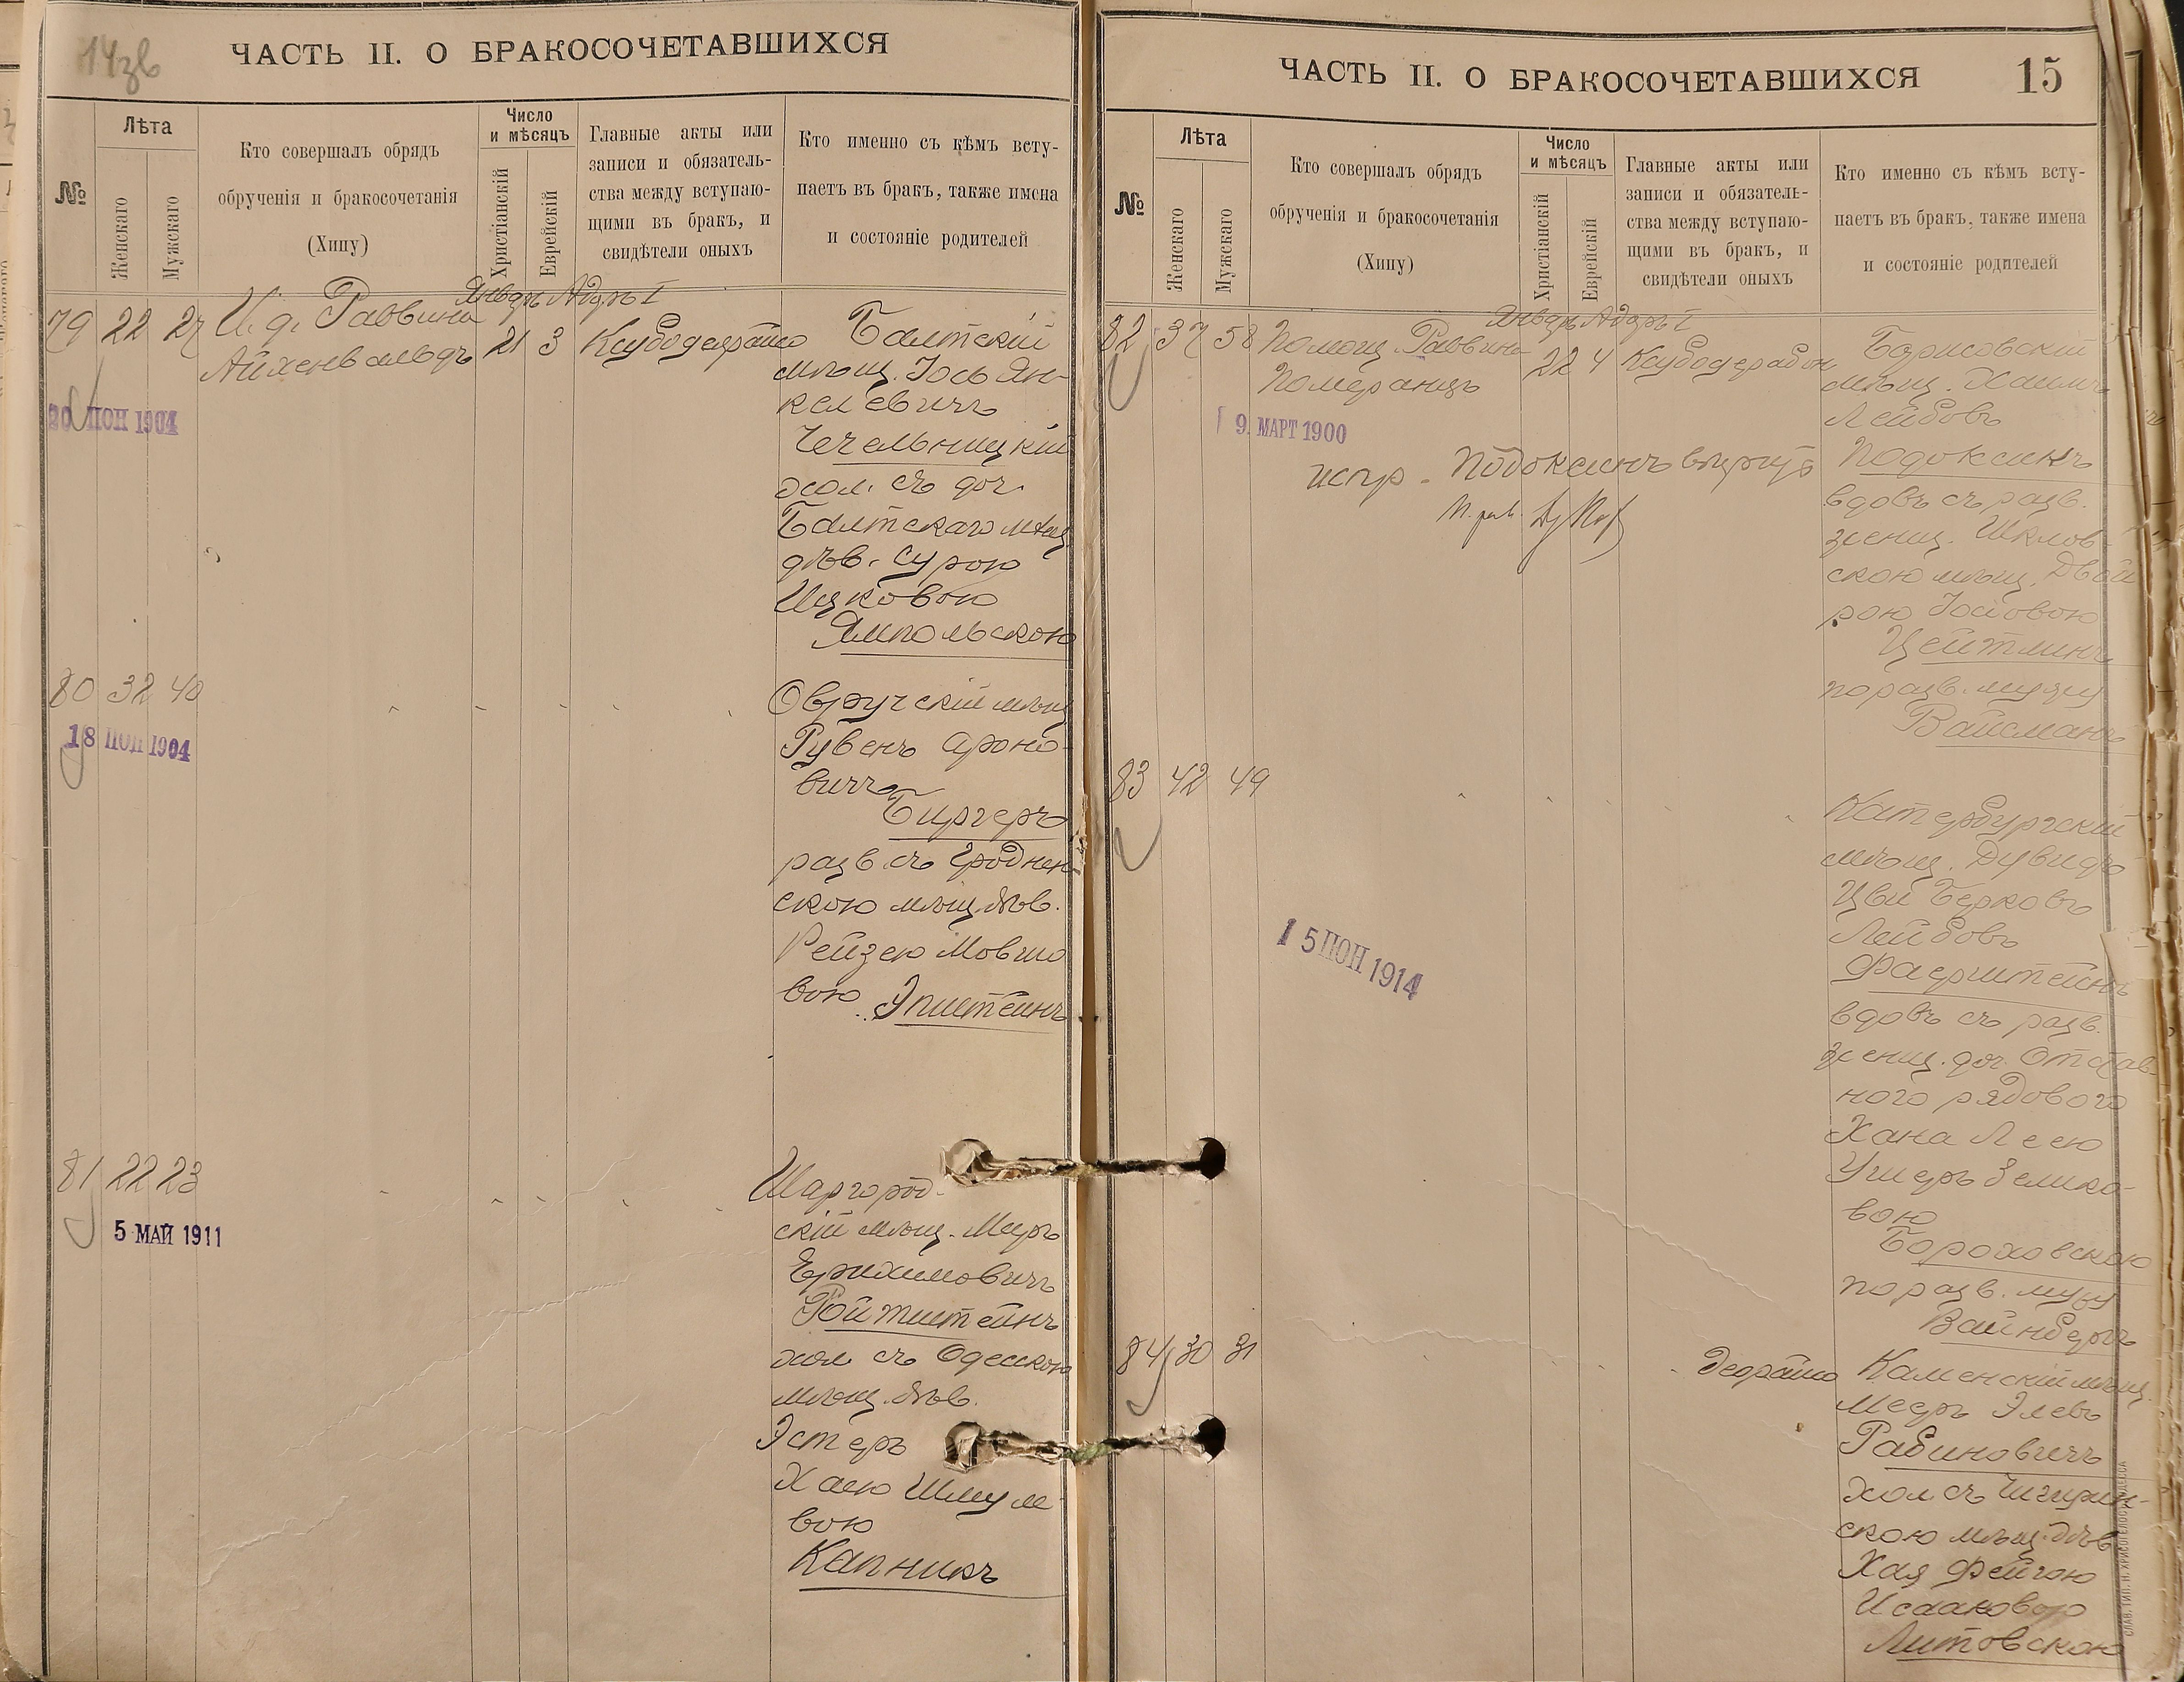 14зв
ЧАСТЬ II. О БРАКОСОЧЕТАВШИХСЯ
№
Лѣта
Женскаго
Мужскаго
Кто совершалъ обрядъ
обрученія и бракосочетанія
(Хипу)
Число
и мѣсяцъ
Христіанскій
Еврейскій
Главные акты или
записи и обязатель-
ства между вступаю-
щими въ бракъ, и
свидѣтели оныхъ
Кто именно съ кѣмъ всту-
паетъ въ бракъ, также имена
и состояніе родителей
Январь Адаръ I
79 22 27 И. д. Раввина
Айхенвальдъ 21 3
20 ІЮН 1904
Балтскій
мѣщ. Іось Ян-
келевичъ
Чечельницкій
хол. съ доч.
Балтскаго мѣщ
дѣв. Сурою
Ицковою
Ямпольскою
80 32 40
18 ІЮН 1904
Овручскій мѣщ
Рувенъ Ароно-
вичъ
Биргеръ
разв. съ Гроднен-
скою мѣщ. дѣв.
Рейзею Мовшо
вою Эпштейнъ
81 22 23
5 МАЙ 1911
Шаргород-
скій мѣщ. Меръ
Ефроимовичъ
Ройтштейнъ
хол съ Одесскою
мѣщ. дѣв.
Эстеръ
Хаею Шмуле-
вою
Капникъ
ЧАСТЬ II. О БРАКОСОЧЕТАВШИХСЯ
15
№
Лѣта
Женскаго
Мужскаго
Кто совершалъ обрядъ
обрученія и бракосочетанія
(Хипу)
Число
и мѣсяцъ
Христіанскій
Еврейскій
Главные акты или
записи и обязатель-
ства между вступаю-
щими въ бракъ, и
свидѣтели оныхъ
Кто именно съ кѣмъ всту-
паетъ въ бракъ, также имена
и состояніе родителей
Январь Адаръ I
82 37 58 Помощ. Раввина
Померанцъ 22 4
9. МАРТ 1900
испр. Подоксинъ
Борисовскій
мѣщ. Хаимъ
Лейбовъ
Подоксинъ
вдовъ съ разв.
женщ. Шклов-
скою мѣщ. Двой
рою Іосифовою
Цейтлинъ
по разв. мужу
Вайсманъ
83 42 49
15 ІЮН 1914
Катербургскій
мѣщ. Дувидъ
Цви Берковъ
Лейбовъ
Фаерштейнъ
вдовъ съ разв.
женщ. доч. Отстав-
ного рядового
Хана Леею
Ушеръ Зелико-
вою
Бороховскою
по разв. мужу
Вайнберъ
84 30 31
Каменскій мѣщ.
Мееръ Элевъ
Рабиновичъ
хол съ Чигирин-
скою мѣщ. дѣв
Хая Фейгою
Исааковою
Литовскою